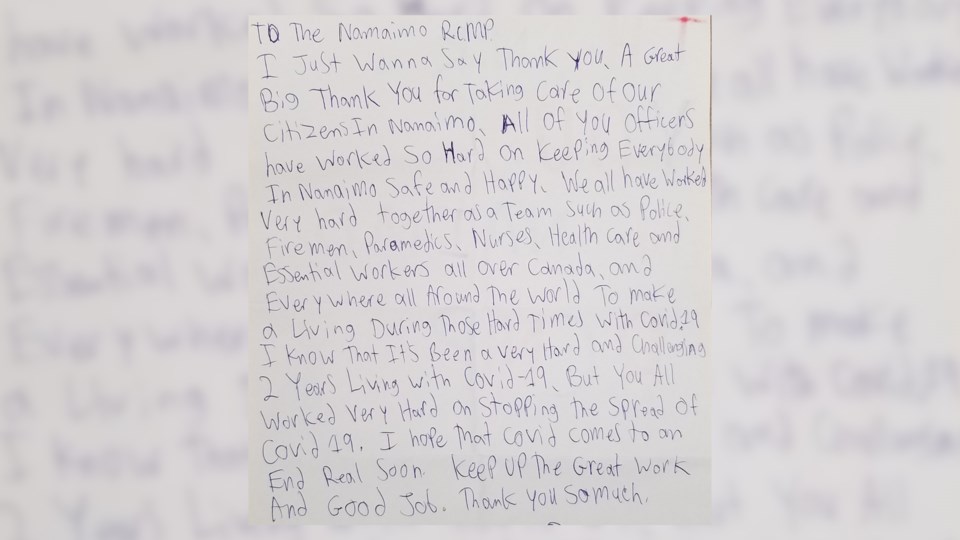 TO The Namaimo RCMP
I Just Wanna Say Thank you, A Great
Big Thank You for Taking Care Of Our
Citizens In Nanaimo, All Of You Officers
have Worked So Hard On Keeping Everybody
In Nanaimo Safe and Happy. We all have Worked
Very hard together as a Team Such as Police,
Firemen, Paramedics, Nurses, Health Care and
Essential Workers all over Canada, and
Everywhere all Around The World To make
a Living During Those Hard Times With Covid-19
I Know That It's Been a very Hard and Challanging
2 Years Living with Covid-19, But You All
Worked Very Hard On Stopping the Spread Of
Covid 19. I hope That Covid comes to an
End Real Soon. Keep UP The Great Work
And Good Job. Thank You So much.